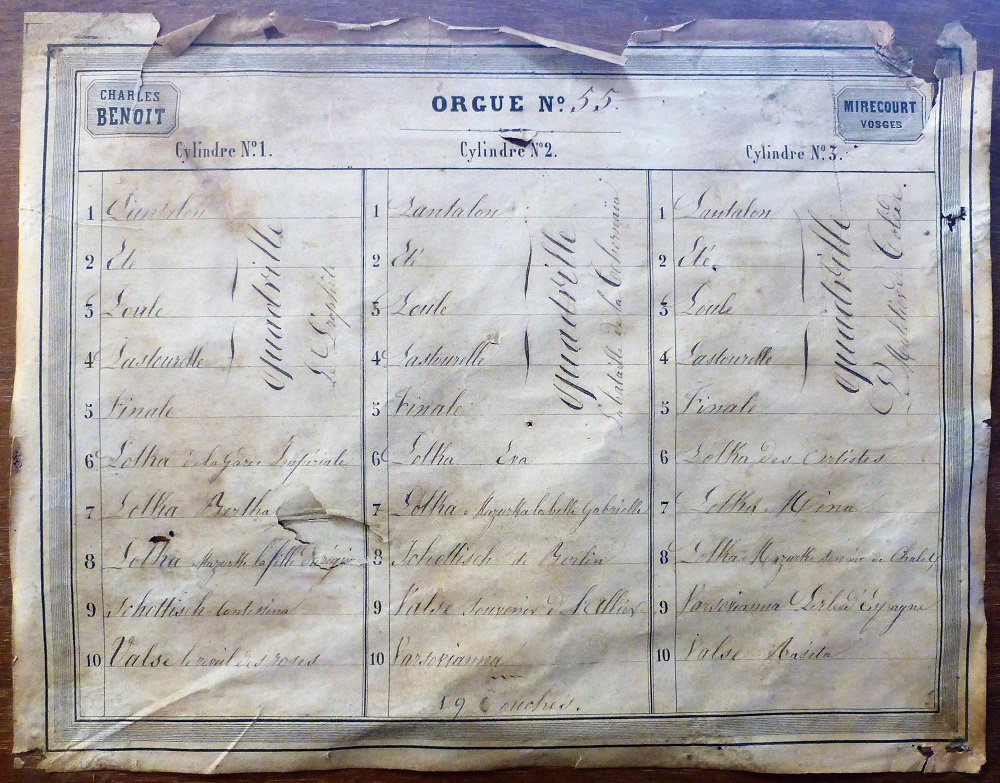 CHARLES
BENOIT
ORGUE Nº 55.
MIRECOURT
VOSGES
Cylindre Nº 1.
1 Pantalon
2 Eté
3 Poule
4 Pastourelle
5 Finale
Quadrille
Le Prophète
6 Polka de la Garde Impériale
7 Polka Bertha
8 Polka Mazurka la fille du
9 Schottisch Contessina
10 Valse le réveil des roses
Cylindre Nº 2.
1 Pantalon
2 Eté
3 Poule
4 Pastourelle
5 Finale
Quadrille
La bataille de la
6 Polka Eva
7 Polka Mazurka la belle Gabrielle
8 Schottisch de Berlin
9 Valse Souvenir d'Allier
10 Varsovianna
19 Touches.
Cylindre Nº 3.
1 Pantalon
2 Eté
3 Poule
4 Pastourelle
5 Finale
Quadrille
6 Polka des Artistes
7 Polka Mina
8 Polka Mazurka
9 Varsovianna Perle d'Espagne
10 Valse Rosita